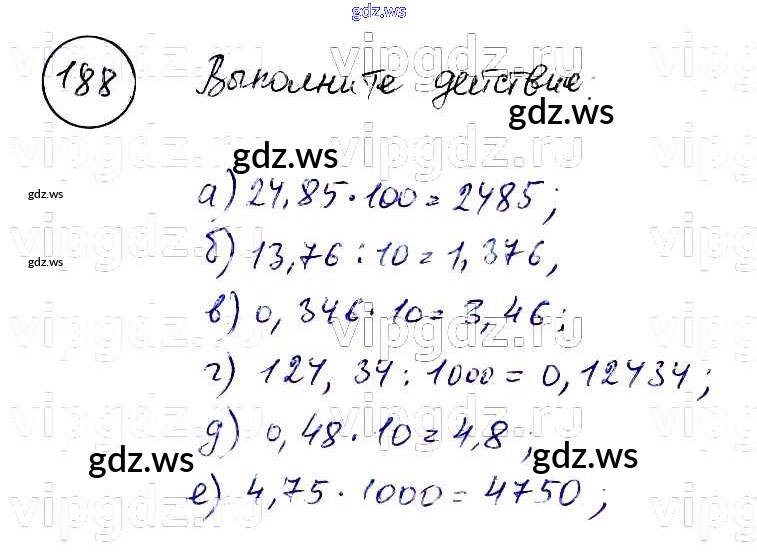 gdz.ws
188 Выполните действие:
gdz.ws
gdz.ws
gdz.ws
а) 24,85 · 100 = 2485;
б) 13,76 : 10 = 1,376,
gdz.ws
в) 0,346 · 10 = 3,46;
г) 124,34 : 1000 = 0,12434;
д) 0,48 · 10 = 4,8;
gdz.ws
gdz.ws
е) 4,75 · 1000 = 4750;
vipgdz.ru